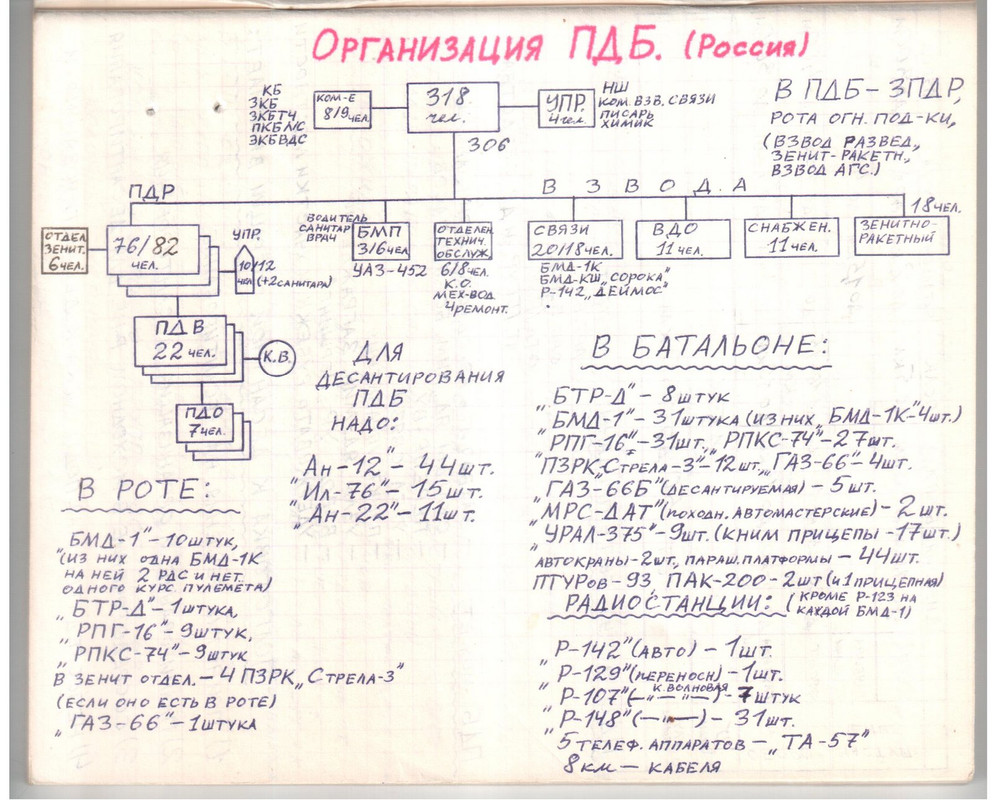 ОРГАНИЗАЦИЯ ПДБ. (РОССИЯ)
КБ
ЗКБ
ЗКБТЧ
ПКБЛ/С
ЗКБВДС
КОМ-Е
8/9 ЧЕЛ.
318
чел.
УПР.
4 чел.
НШ
КОМ. ВЗВ. СВЯЗИ
ПИСАРЬ
ХИМИК
306
В ПДБ – 3ПДР,
РОТА ОГН. ПОД-КИ,
(ВЗВОД РАЗВЕД.,
ЗЕНИТ-РАКЕТН.,
ВЗВОД АГС.)
ПДР
ВЗВОДА
18 ЧЕЛ.
ОТДЕЛ.
ЗЕНИТ.
6 ЧЕЛ.
76/82
ЧЕЛ.
УПР.
10/12
ЧЕЛ
(+2 САНИТАРА)
ВОДИТЕЛЬ
САНИТАР
ВРАЧ
БМП
3/6 чел
УАЗ-452
ОТДЕЛЕН.
ТЕХНИЧ.
ОБСЛУЖ.
6/8 чел.
К.О.
МЕХ-ВОД.
4 РЕМОНТ.
СВЯЗИ
20/18 ЧЕЛ.
БМД-1К
БМД-КШ „СОРОКА"
Р-142 „ДЕЙМОС"
ВДО
11 ЧЕЛ.
СНАБЖЕН.
11 ЧЕЛ.
ЗЕНИТНО-
РАКЕТНЫЙ
ПДВ
22 ЧЕЛ.
К.В.
ПДО
7 ЧЕЛ.
ДЛЯ
ДЕСАНТИРОВАНИЯ
ПДБ
НАДО:
„Ан-12" – 44 шт.
„Ил-76" – 15 шт.
„Ан-22" – 11 шт.
В РОТЕ:
„БМД-1" – 10 штук,
(ИЗ НИХ ОДНА БМД-1К
НА НЕЙ 2 РДС И НЕТ
ОДНОГО КУРС ПУЛЕМЁТА)
„БТР-Д" – 1 ШТУКА,
„РПГ-16" – 9 ШТУК,
„РПКС-74" – 9 ШТУК
В ЗЕНИТ ОТДЕЛ. – 4 ПЗРК „СТРЕЛА-3"
(ЕСЛИ ОНО ЕСТЬ В РОТЕ)
„ГАЗ-66" – 1 ШТУКА
В БАТАЛЬОНЕ:
„БТР-Д" – 8 ШТУК
„БМД-1" – 31 ШТУКА (ИЗ НИХ „БМД-1К" 4 шт.)
„РПГ-16" – 31 шт., „РПКС-74" – 27 шт.
ПЗРК „Стрела-3" – 12 шт., „ГАЗ-66" – 4 шт.
„ГАЗ-66Б" (ДЕСАНТИРУЕМАЯ) – 5 шт.
„МРС-ДАТ" (ПОХОДН. АВТОМАСТЕРСКИЕ) – 2 шт.
„УРАЛ-375" – 9 шт. (К НИМ ПРИЦЕПЫ – 17 шт.)
АВТОКРАНЫ – 2 шт., ПАРАШ. ПЛАТФОРМЫ – 44 шт.
ПТУРов – 93, ПАК-200 – 2 шт (И 1 ПРИЦЕПНАЯ)
РАДИОСТАНЦИИ: (КРОМЕ Р-123 НА
КАЖДОЙ БМД-1)
„Р-142" (АВТО) – 1 шт.
„Р-129" (ПЕРЕНОСН) – 1 шт.
„Р-107" (—"— К. ВОЛНОВАЯ —"—) – 7 ШТУК
„Р-148" (—"—) – 31 шт.
5 ТЕЛЕФ. АППАРАТОВ – „ТА-57"
8 КМ – КАБЕЛЯ